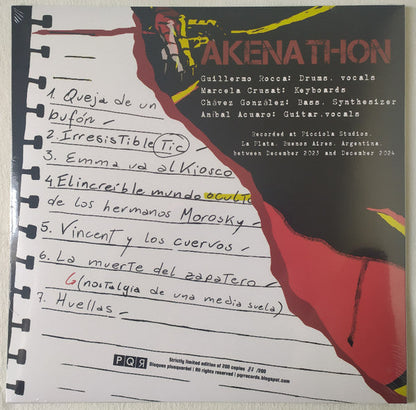 AKENATHON
Guillermo Rocca: Drums. vocals
Marcela Crusat: Keyboards
Chávez González: Bass. Synthesizer
Aníbal Acuaro: Guitar.vocals
Recorded at Picciola Studios.
La Plata. Buenos Aires. Argentina.
between December 2023 and December 2024
1. Queja de un
bufón
2. Irresistible Tic
3. Emma va al Kiosco
4 El increíble mundo oculto
de los hermanos Morosky
5. Vincent y los cuervos
6. La muerte del zapatero
(nostalgia de una media suela)
7. Huellas
PQR
Strictly limited edition of 200 copies /200
Disques plusquaréel | All rights reserved | pqrrecords.blogspot.com